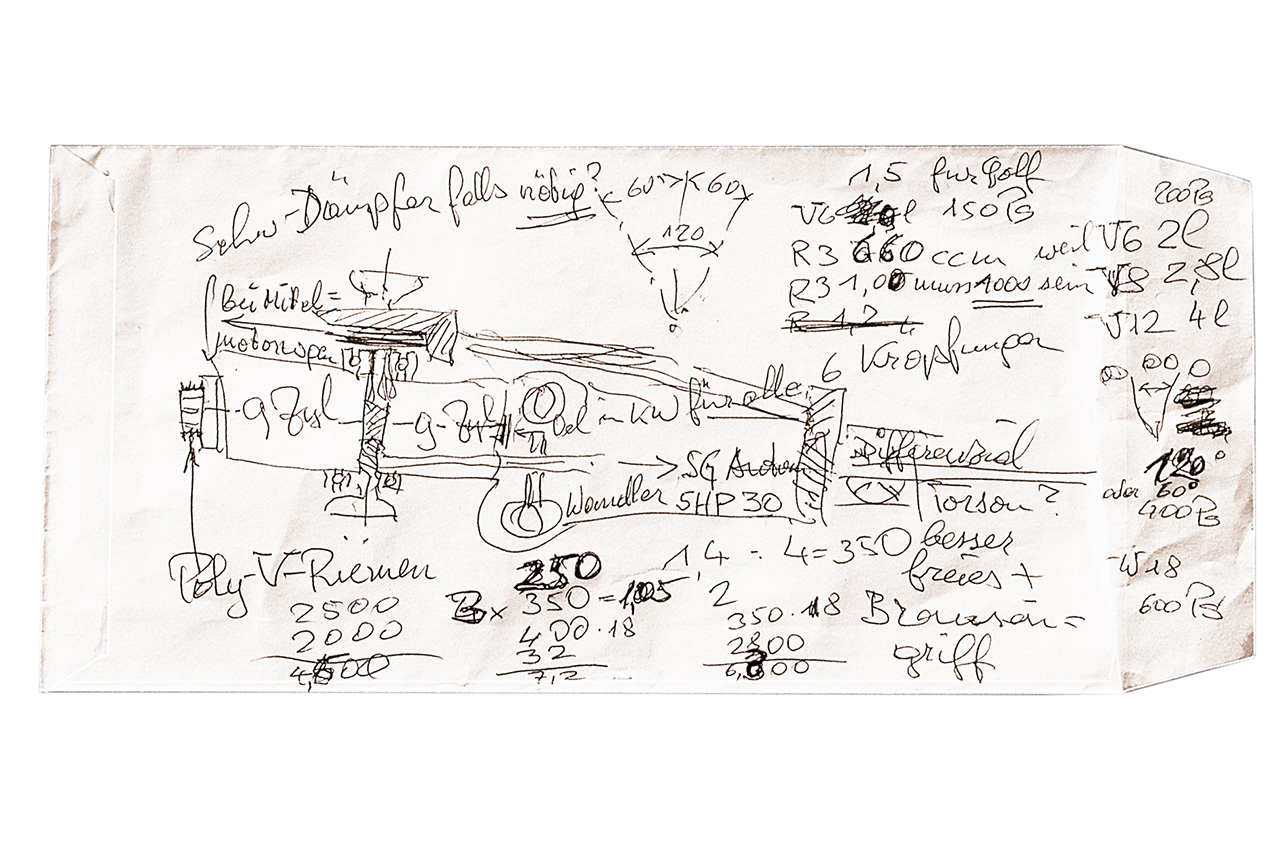 Schw-Dämpfer falls nötig?
60° 60
120
1,5 für Golf
V6 l 150 PS
R3 660 ccm weil
R3 1,00 muss 1000 sein
R 1,2
6 Kröpfungen
200 PS
V6 2l
V8 2,8l
V12 4l
120°
oder 60°
400 PS
W18
600 PS
Bei Mittel=
motorwagen
9 Zyl
9-Zyl
Öl in KW für alle
5G Autom
Wandler 5HP30
Differenzial
Torson?
besser
freies +
Browsön=
griff
Poly-V-Riemen
2500
2000
4,500
250
3x 350 = 1,05
400 · 18
32
7,2
1,4 : 4 = 350
2
350 · 18
2800
6,300